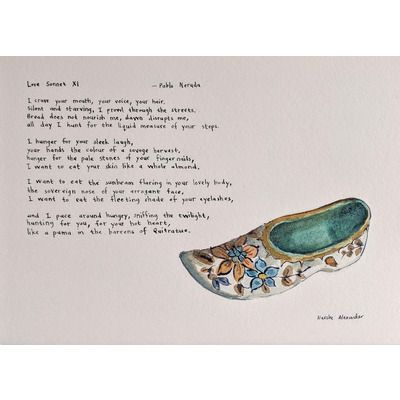 Love Sonnet XI — Pablo Neruda
I crave your mouth, your voice, your hair.
Silent and starving, I prowl through the streets.
Bread does not nourish me, dawn disrupts me,
all day I hunt for the liquid measure of your steps.
I hunger for your sleek laugh,
your hands the colour of a savage harvest,
hunger for the pale stones of your fingernails,
I want to eat your skin like a whole almond.
I want to eat the sunbeam flaring in your lovely body,
the sovereign nose of your arrogant face,
I want to eat the fleeting shade of your eyelashes,
and I pace around hungry, sniffing the twilight,
hunting for you, for your hot heart,
like a puma in the barrens of Quitratue.
Alexander